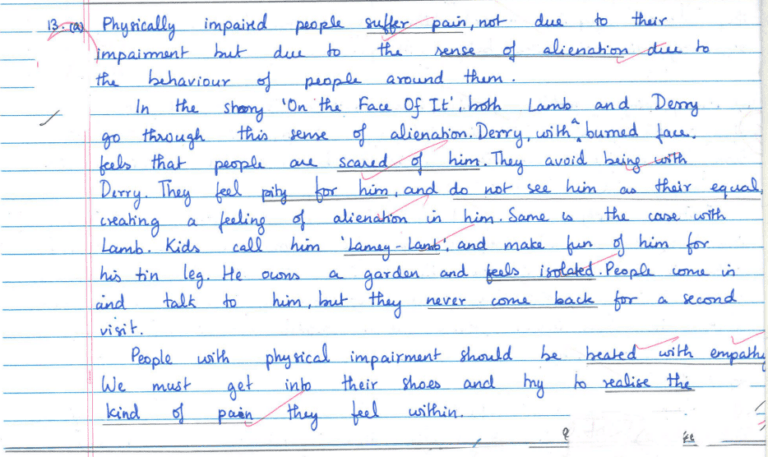 13. (a) Physically impaired people suffer pain, not due to their
impairment but due to the sense of alienation due to
the behaviour of people around them.
In the story 'On the Face Of It', both Lamb and Derry
go through this sense of alienation. Derry, with a burned face,
feels that people are scared of him. They avoid being with
Derry. They feel pity for him, and do not see him as their equal,
creating a feeling of alienation in him. Same is the case with
Lamb. Kids call him 'Lamey-Lamb', and make fun of him for
his tin leg. He owns a garden and feels isolated. People come in
and talk to him, but they never come back for a second
visit.
People with physical impairment should be treated with empathy
We must get into their shoes and try to realise the
kind of pain they feel within.